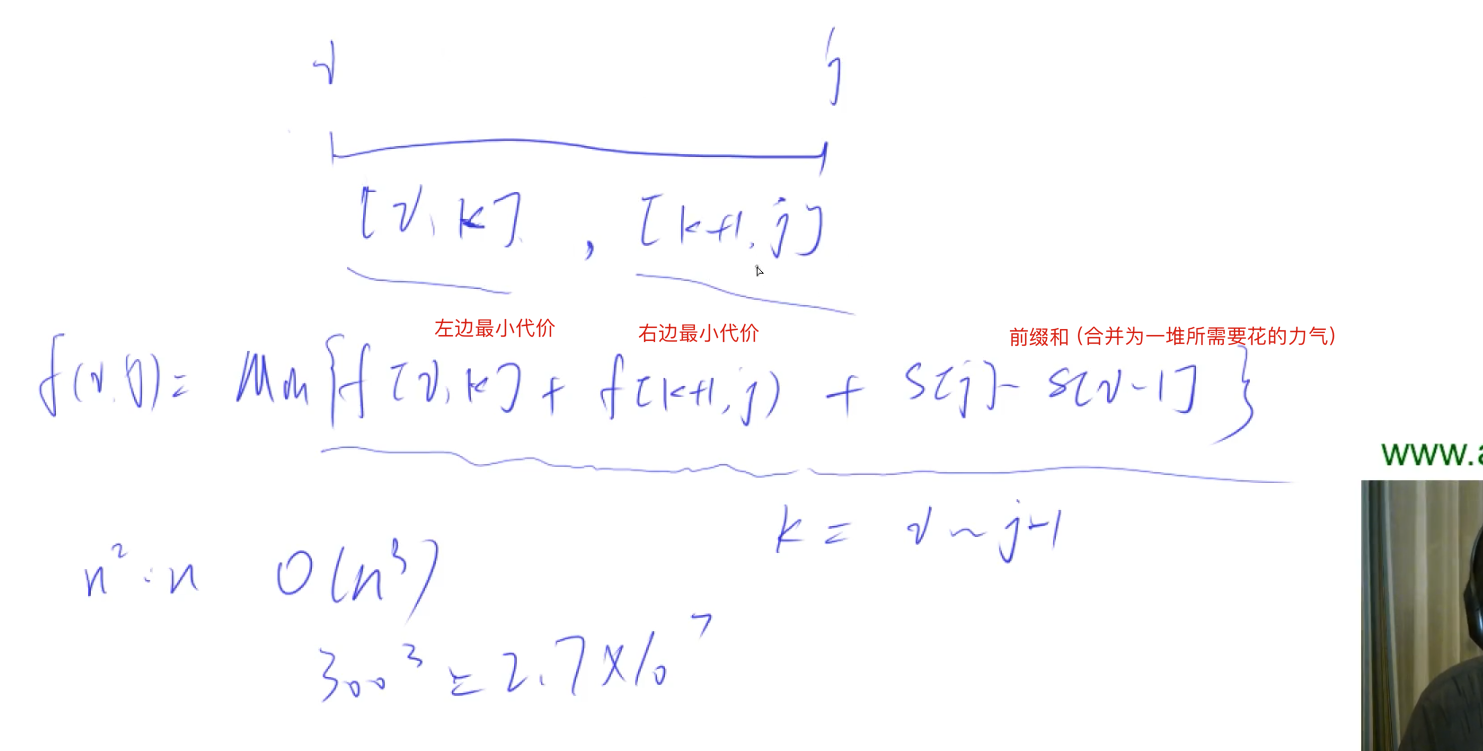 i j
[i, k] , [k+1, j]
左边最小代价 右边最小代价 前缀和 (合并为一堆所需要花的力气)
f(i, j) = Min{f[i, k] + f[k+1, j) + S[j] - S[i-1]}
www.a
k = i ~ j-1
n² · n O(n³)
300³ = 2.7 × 10⁷